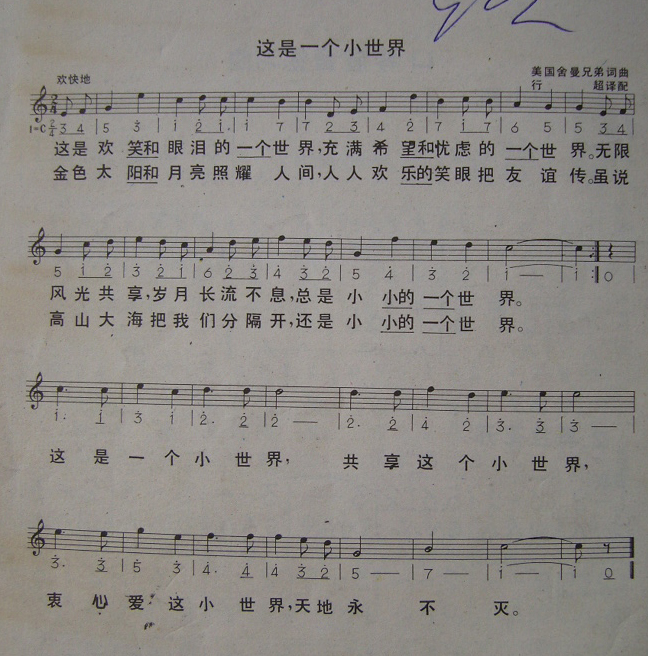 这是一个小世界
欢快地
美国舍曼兄弟词曲
行 超译配
1=C 2/4 3 4 | 5 3 | i 2 i. | i 7 | 7 2 3 | 4 2 | 7 i 7 | 6 5 | 5 3 4 |
这是 欢 笑和 眼 泪的 一个世 界,充 满 希 望和忧虑的 一个世 界。无限
金色 太 阳和 月亮照耀 人间,人人欢 乐的笑眼把 友 谊 传。虽说
5 i 2 | 3 2 i | 6 2 3 | 4 3 2 | 5 4 | 3 2 | i — | i :| 0 |
风 光 共 享,岁 月 长 流 不 息,总 是 小 小的 一个世 界。
高 山 大 海把 我 们 分 隔 开,还是 小 小的 一个世 界。
i. i | 3 i | 2. 2 | 2 — | 2. 2 | 4 2 | 3. 3 | 3 — |
这 是 一 个 小 世 界, 共 享 这 个 小 世 界,
3. 3 | 5 3 | 4. 4 | 4 3 2 | 5 — | 7 — | i — | i 0
衷 心 爱 这 小 世 界,天地 永 不 灭。